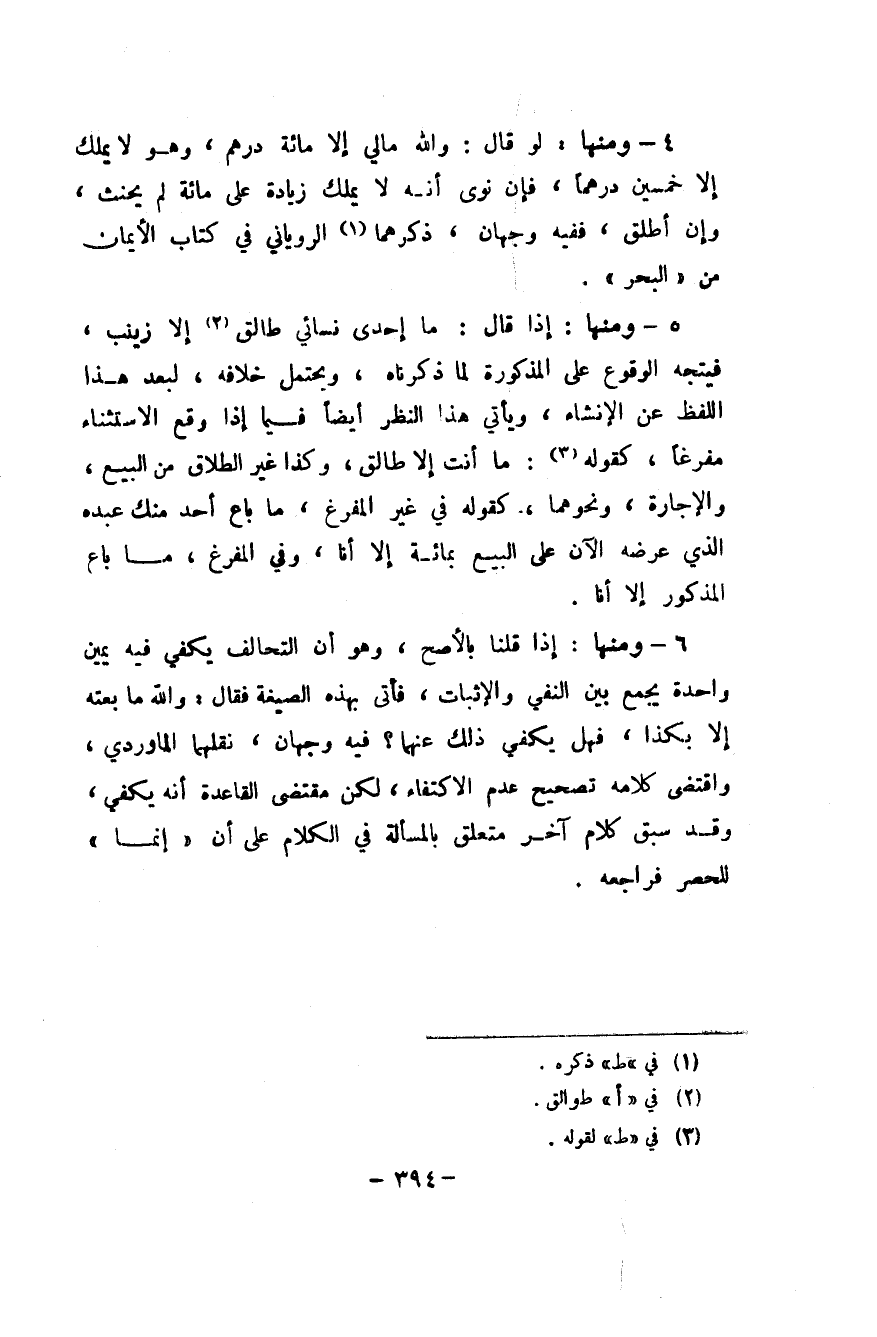 ٤ – ومنها : لو قال : والله مالي إلا مائة درهم ، وهو لا يملك
إلا خمسين درهماً ، فإن نوى أنه لا يملك زيادة على مائة لم يحنث ،
وإن أطلق ، ففيه وجهان ، ذكرهما (١) الروياني في كتاب الأيمان
من « البحر » .
٥ – ومنها : إذا قال : ما إحدى نسائي طالق (٢) إلا زينب ،
فيتجه الوقوع على المذكورة لما ذكرناه ، ويحتمل خلافه ، لبعد هذا
اللفظ عن الإنشاء ، ويأتي هذا النظر أيضاً فيما إذا وقع الاستثناء
مفرغاً ، كقوله (٣) : ما أنت إلا طالق ، وكذا غير الطلاق من البيع ،
والإجارة ، ونحوهما ، كقوله في غير المفرغ ، ما باع أحد منك عبده
الذي عرضه الآن على البيع بمائة إلا أنا ، وفي المفرغ ، ما باع
المذكور إلا أنا .
٦ – ومنها : إذا قلنا بالأصح ، وهو أن التحالف يكفي فيه يمين
واحدة يجمع بين النفي والإثبات ، فأتى بهذه الصيغة فقال : والله ما بعته
إلا بكذا ، فهل يكفي ذلك عنها؟ فيه وجهان ، نقلهما الماوردي ،
واقتضى كلامه تصحيح عدم الاكتفاء ، لكن مقتضى القاعدة أنه يكفي ،
وقد سبق كلام آخر متعلق بالمسألة في الكلام على أن « إنما »
للحصر فراجعه .
(١) في «ط» ذكره .
(٢) في «أ» طوالق .
(٣) في «ط» لقوله .
– ٣٩٤ –